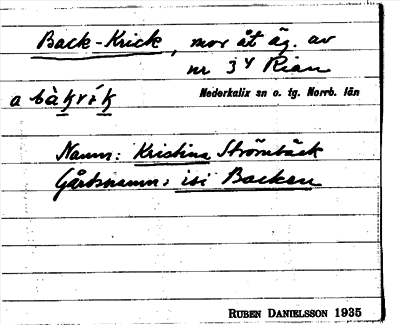 Back-Krick, mor åt äg. av
nr 3⁴ Rian
a bàkrík
Nederkalix sn o. tg. Norrb. län
Namn: Kristina Strömbäck
Gårdsnamn: isi Backen
RUBEN DANIELSSON 1935